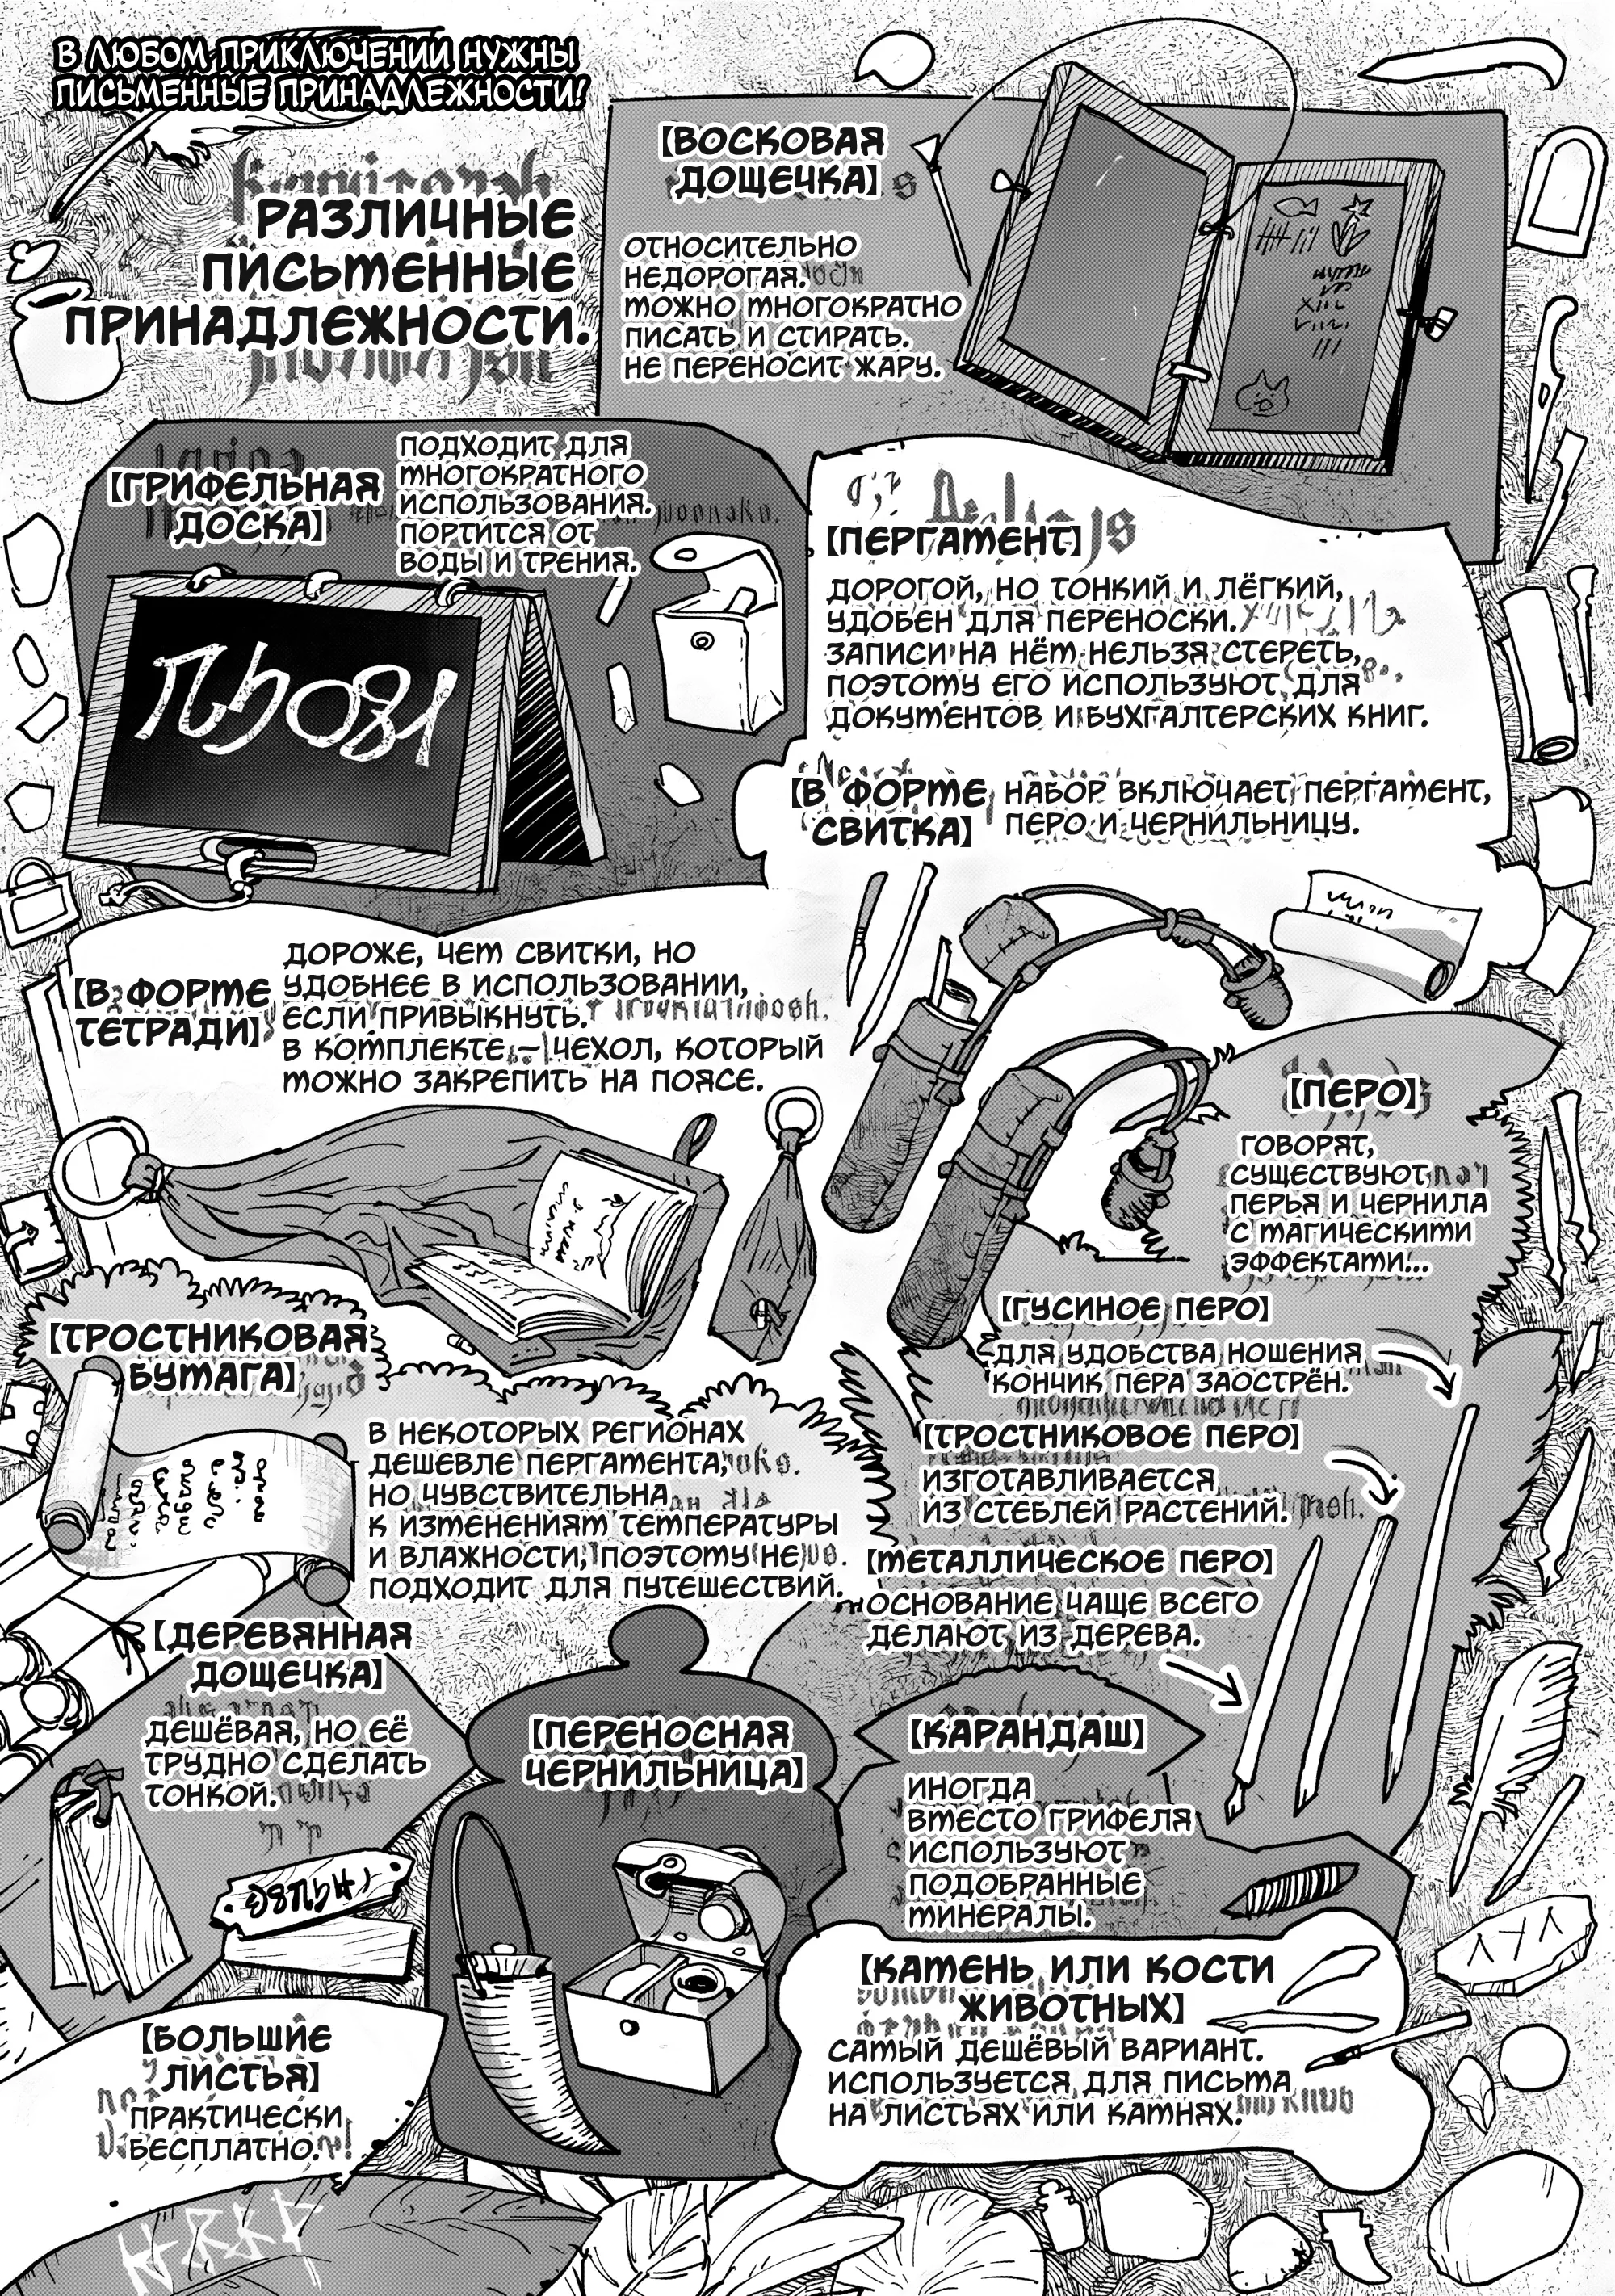 В ЛЮБОМ ПРИКЛЮЧЕНИИ НУЖНЫ
ПИСЬМЕННЫЕ ПРИНАДЛЕЖНОСТИ!
РАЗЛИЧНЫЕ
ПИСЬМЕННЫЕ
ПРИНАДЛЕЖНОСТИ.
【ВОСКОВАЯ
ДОЩЕЧКА】
ОТНОСИТЕЛЬНО
НЕДОРОГАЯ.
МОЖНО МНОГОКРАТНО
ПИСАТЬ И СТИРАТЬ.
НЕ ПЕРЕНОСИТ ЖАРУ.
【ГРИФЕЛЬНАЯ
ДОСКА】
ПОДХОДИТ ДЛЯ
МНОГОКРАТНОГО
ИСПОЛЬЗОВАНИЯ.
ПОРТИТСЯ ОТ
ВОДЫ И ТРЕНИЯ.
【ПЕРГАМЕНТ】
ДОРОГОЙ, НО ТОНКИЙ И ЛЁГКИЙ,
УДОБЕН ДЛЯ ПЕРЕНОСКИ.
ЗАПИСИ НА НЁМ НЕЛЬЗЯ СТЕРЕТЬ,
ПОЭТОМУ ЕГО ИСПОЛЬЗУЮТ ДЛЯ
ДОКУМЕНТОВ И БУХГАЛТЕРСКИХ КНИГ.
【В ФОРМЕ
СВИТКА】
НАБОР ВКЛЮЧАЕТ ПЕРГАМЕНТ,
ПЕРО И ЧЕРНИЛЬНИЦУ.
【В ФОРМЕ
ТЕТРАДИ】
ДОРОЖЕ, ЧЕМ СВИТКИ, НО
УДОБНЕЕ В ИСПОЛЬЗОВАНИИ,
ЕСЛИ ПРИВЫКНУТЬ.
В КОМПЛЕКТЕ – ЧЕХОЛ, КОТОРЫЙ
МОЖНО ЗАКРЕПИТЬ НА ПОЯСЕ.
【ПЕРО】
ГОВОРЯТ,
СУЩЕСТВУЮТ
ПЕРЬЯ И ЧЕРНИЛА
С МАГИЧЕСКИМИ
ЭФФЕКТАМИ...
【ГУСИНОЕ ПЕРО】
ДЛЯ УДОБСТВА НОШЕНИЯ
КОНЧИК ПЕРА ЗАОСТРЁН.
【ТРОСТНИКОВОЕ ПЕРО】
ИЗГОТАВЛИВАЕТСЯ
ИЗ СТЕБЛЕЙ РАСТЕНИЙ.
【МЕТАЛЛИЧЕСКОЕ ПЕРО】
ОСНОВАНИЕ ЧАЩЕ ВСЕГО
ДЕЛАЮТ ИЗ ДЕРЕВА.
【ТРОСТНИКОВАЯ
БУМАГА】
В НЕКОТОРЫХ РЕГИОНАХ
ДЕШЕВЛЕ ПЕРГАМЕНТА,
НО ЧУВСТВИТЕЛЬНА
К ИЗМЕНЕНИЯМ ТЕМПЕРАТУРЫ
И ВЛАЖНОСТИ, ПОЭТОМУ НЕ
ПОДХОДИТ ДЛЯ ПУТЕШЕСТВИЙ.
【ДЕРЕВЯННАЯ
ДОЩЕЧКА】
ДЕШЁВАЯ, НО ЕЁ
ТРУДНО СДЕЛАТЬ
ТОНКОЙ.
【ПЕРЕНОСНАЯ
ЧЕРНИЛЬНИЦА】
【КАРАНДАШ】
ИНОГДА
ВМЕСТО ГРИФЕЛЯ
ИСПОЛЬЗУЮТ
ПОДОБРАННЫЕ
МИНЕРАЛЫ.
【КАМЕНЬ ИЛИ КОСТИ
ЖИВОТНЫХ】
САМЫЙ ДЕШЁВЫЙ ВАРИАНТ.
ИСПОЛЬЗУЕТСЯ ДЛЯ ПИСЬМА
НА ЛИСТЬЯХ ИЛИ КАМНЯХ.
【БОЛЬШИЕ
ЛИСТЬЯ】
ПРАКТИЧЕСКИ
БЕСПЛАТНО.